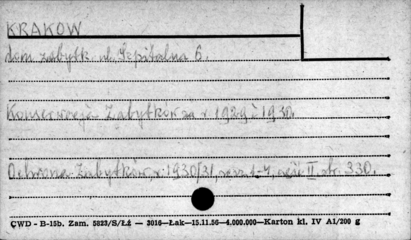 KRAKOW
dom zabytk. ul. Szpitalna 6.
Konserwacja Zabytków za r. 1929 i 1930.
Ochrona Zabytków r. 1930/31 zesz. 1-4, część II str. 330.
CWD - B-15b. Zam. 5823/S/ŁŻ — 3016—Łak—15.11.56—4.000.000—Karton kl. IV A1/200 g